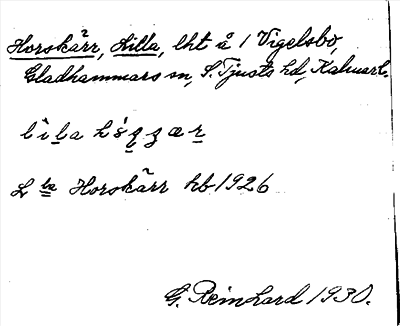 Horskärr, Lilla, lht å 1 Vigelsbo,
Gladhammars sn, S. Tjusts hd, Kalmar l.
Horskärr hb 1926
G. Reinhard 1930.